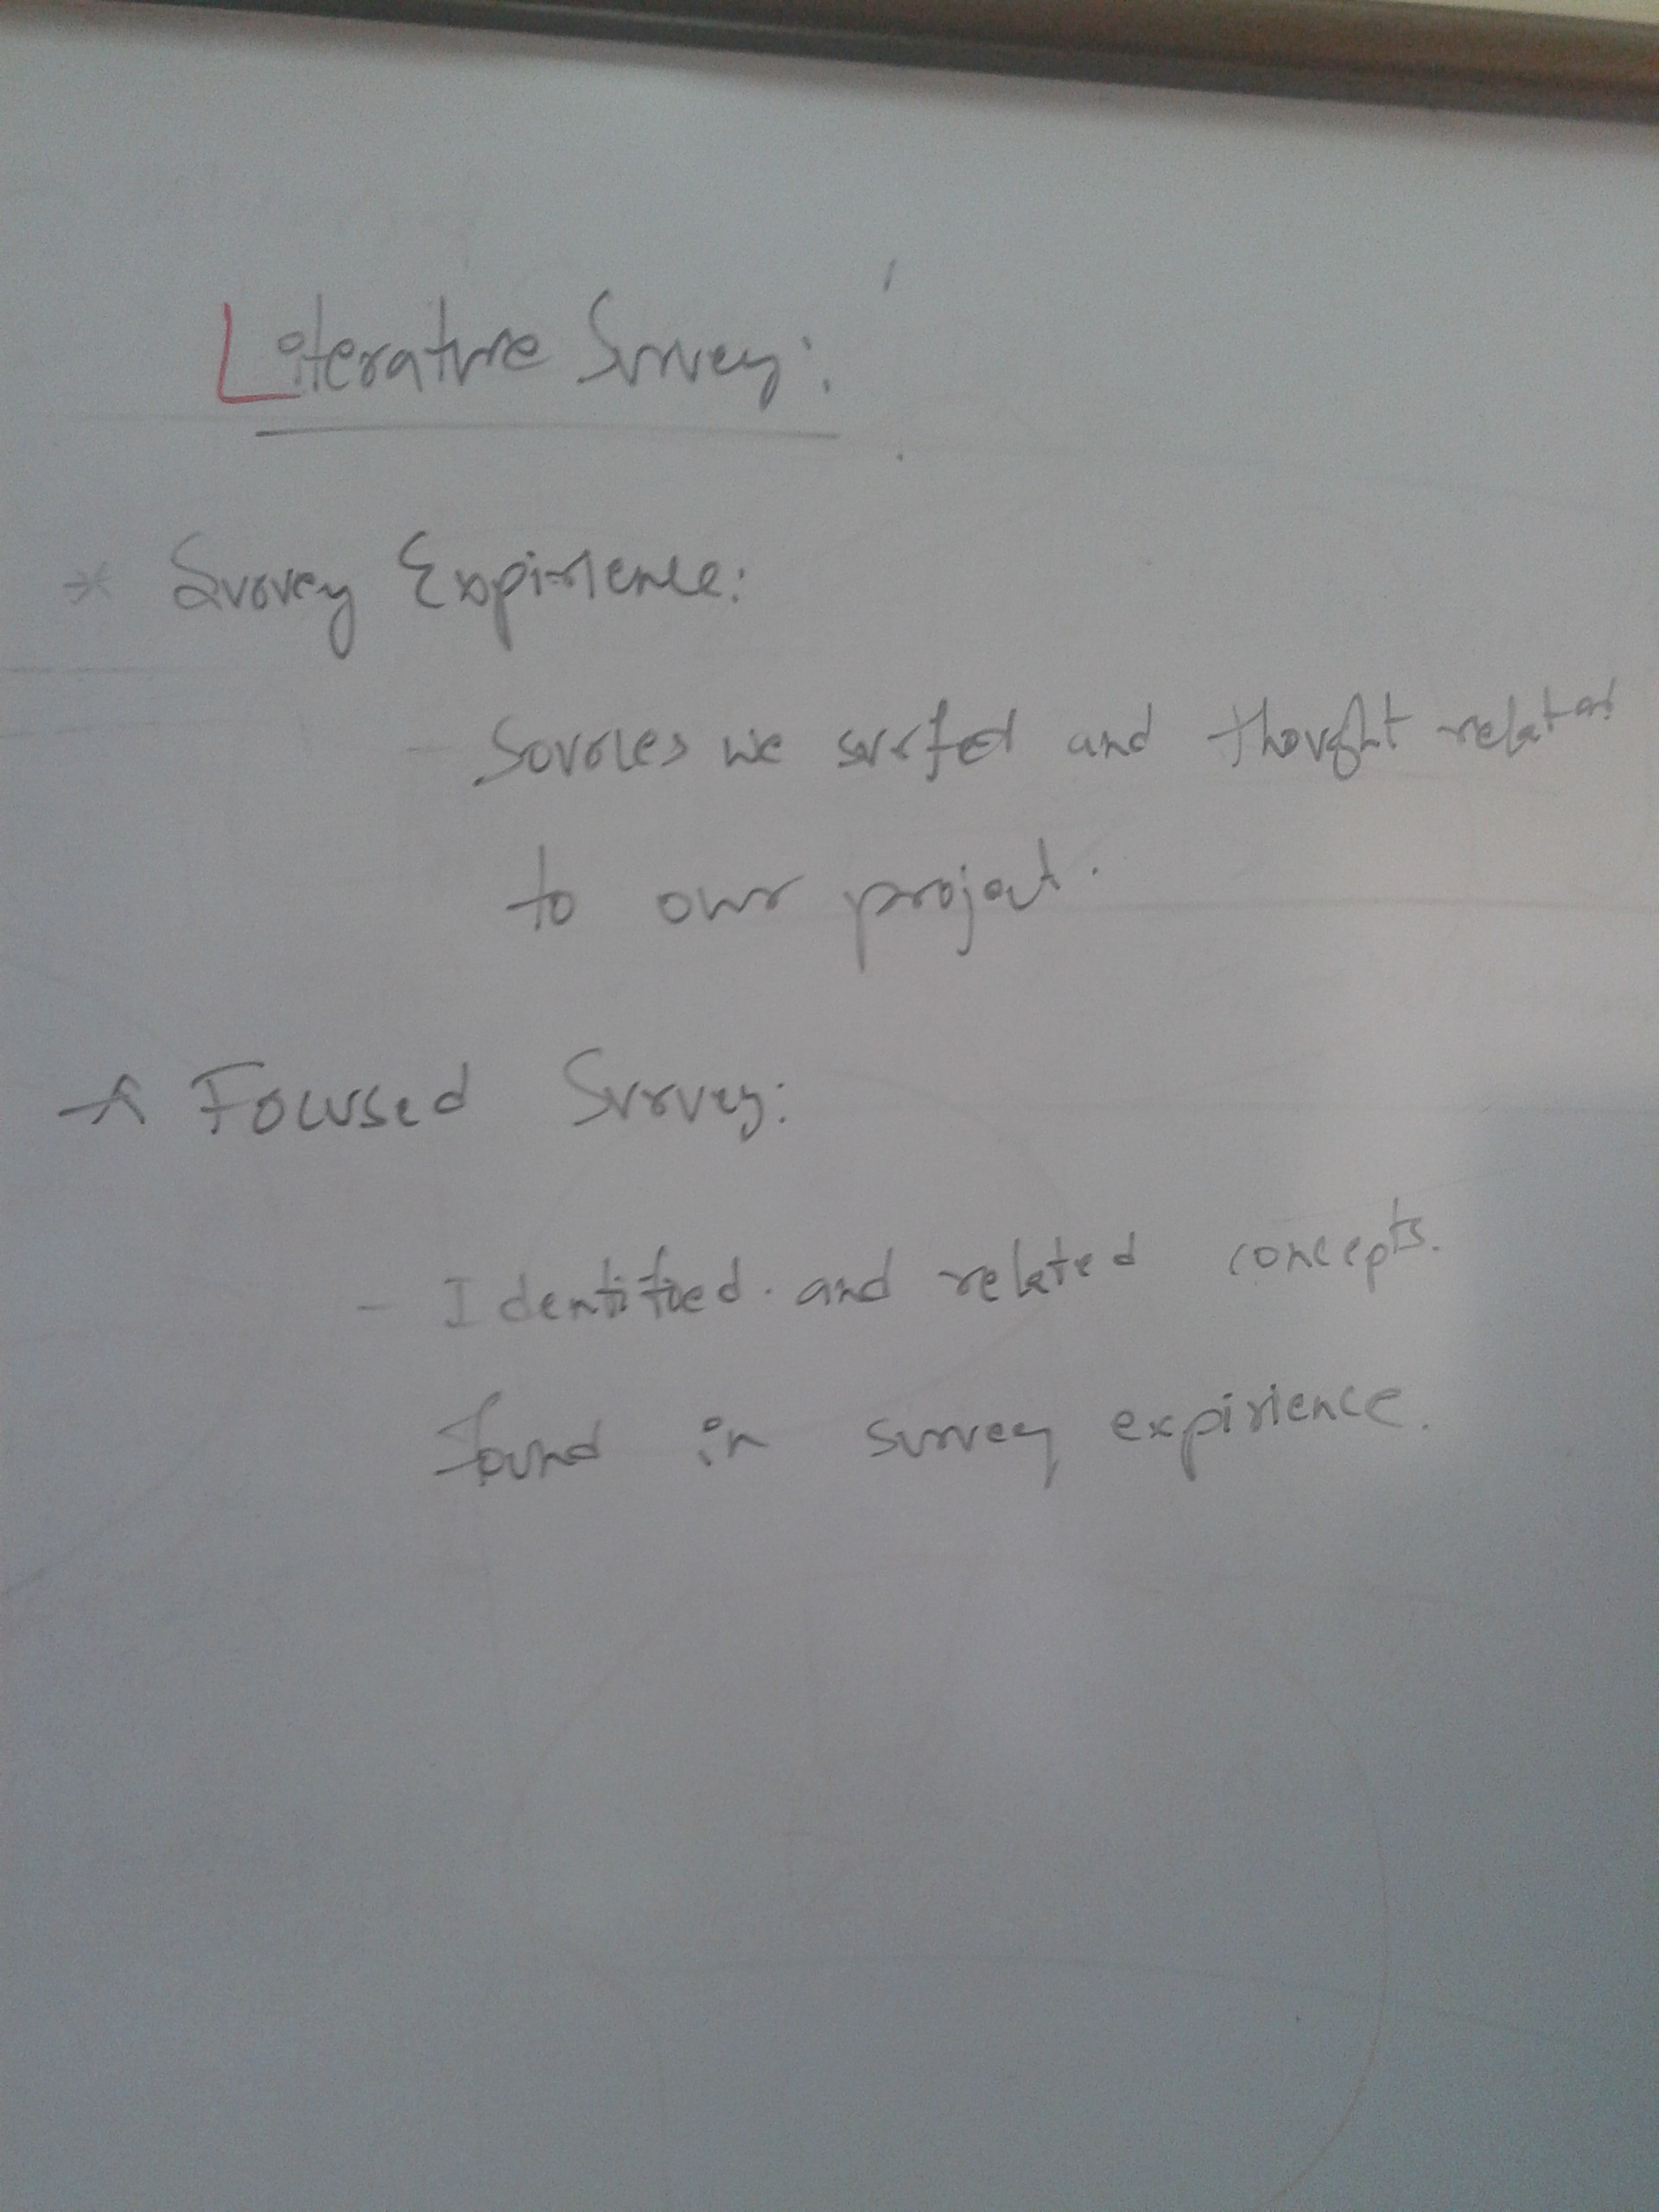 Literature Survey:
* Survey Expirience:
- Sources we surfed and thought related
to our project.
* Focused Survey:
- Identified and related concepts.
found in survey expirience.